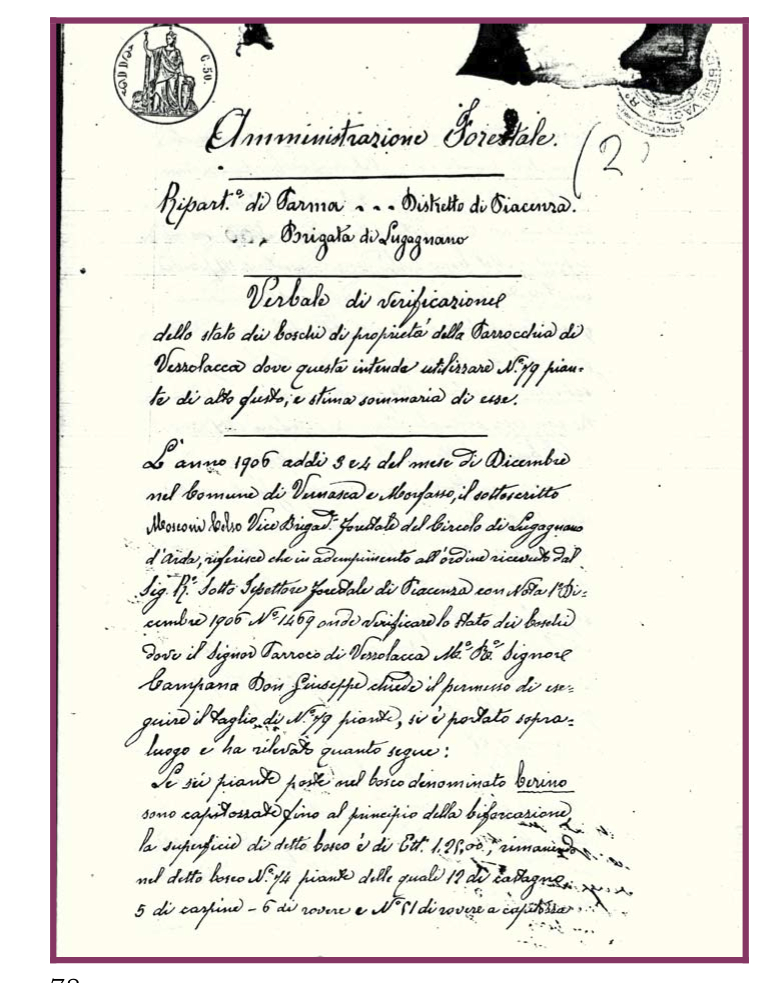 C. 50.
(2)
Amministrazione Forestale.
Ripart.º di Parma - - - Distretto di Piacenza.
Brigata di Lugagnano
Verbale di verificazione
dello stato dei boschi di proprietà della Parrocchia di
Vezzolacca dove questa intende utilizzare N.º 79 pian=
te di alto fusto, e stima sommaria di esse.
L'anno 1906 addì 3 e 4 del mese di Dicembre
nel Comune di Vernasca e Morfasso, il sottoscritto
Mosconi Celso Vice Brigad.e forestale del Circolo di Lugagnano
d'Arda, riferisce che in adempimento all'ordine ricevuto dal
Sig. R.º Sotto Ispettore forestale di Piacenza con Nota 1º Di=
cembre 1906 Nº 1469 onde verificare lo stato dei boschi
dove il Signor Parroco di Vezzolacca M.º R.º Signore
Campana Don Giuseppe chiede il permesso di ese=
guire il taglio di N.º 79 piante, si è portato sopra=
luogo e ha rilevato quanto segue:
Le sei piante poste nel bosco denominato Cerino
sono capitozzate fino al principio della biforcazione,
la superficie di detto bosco è di Ett. 1.25,00, rimanendo
nel detto bosco N.º 74 piante delle quali 12 di castagno
5 di carpine - 6 di rovere e Nº 51 di rovere a capitozza